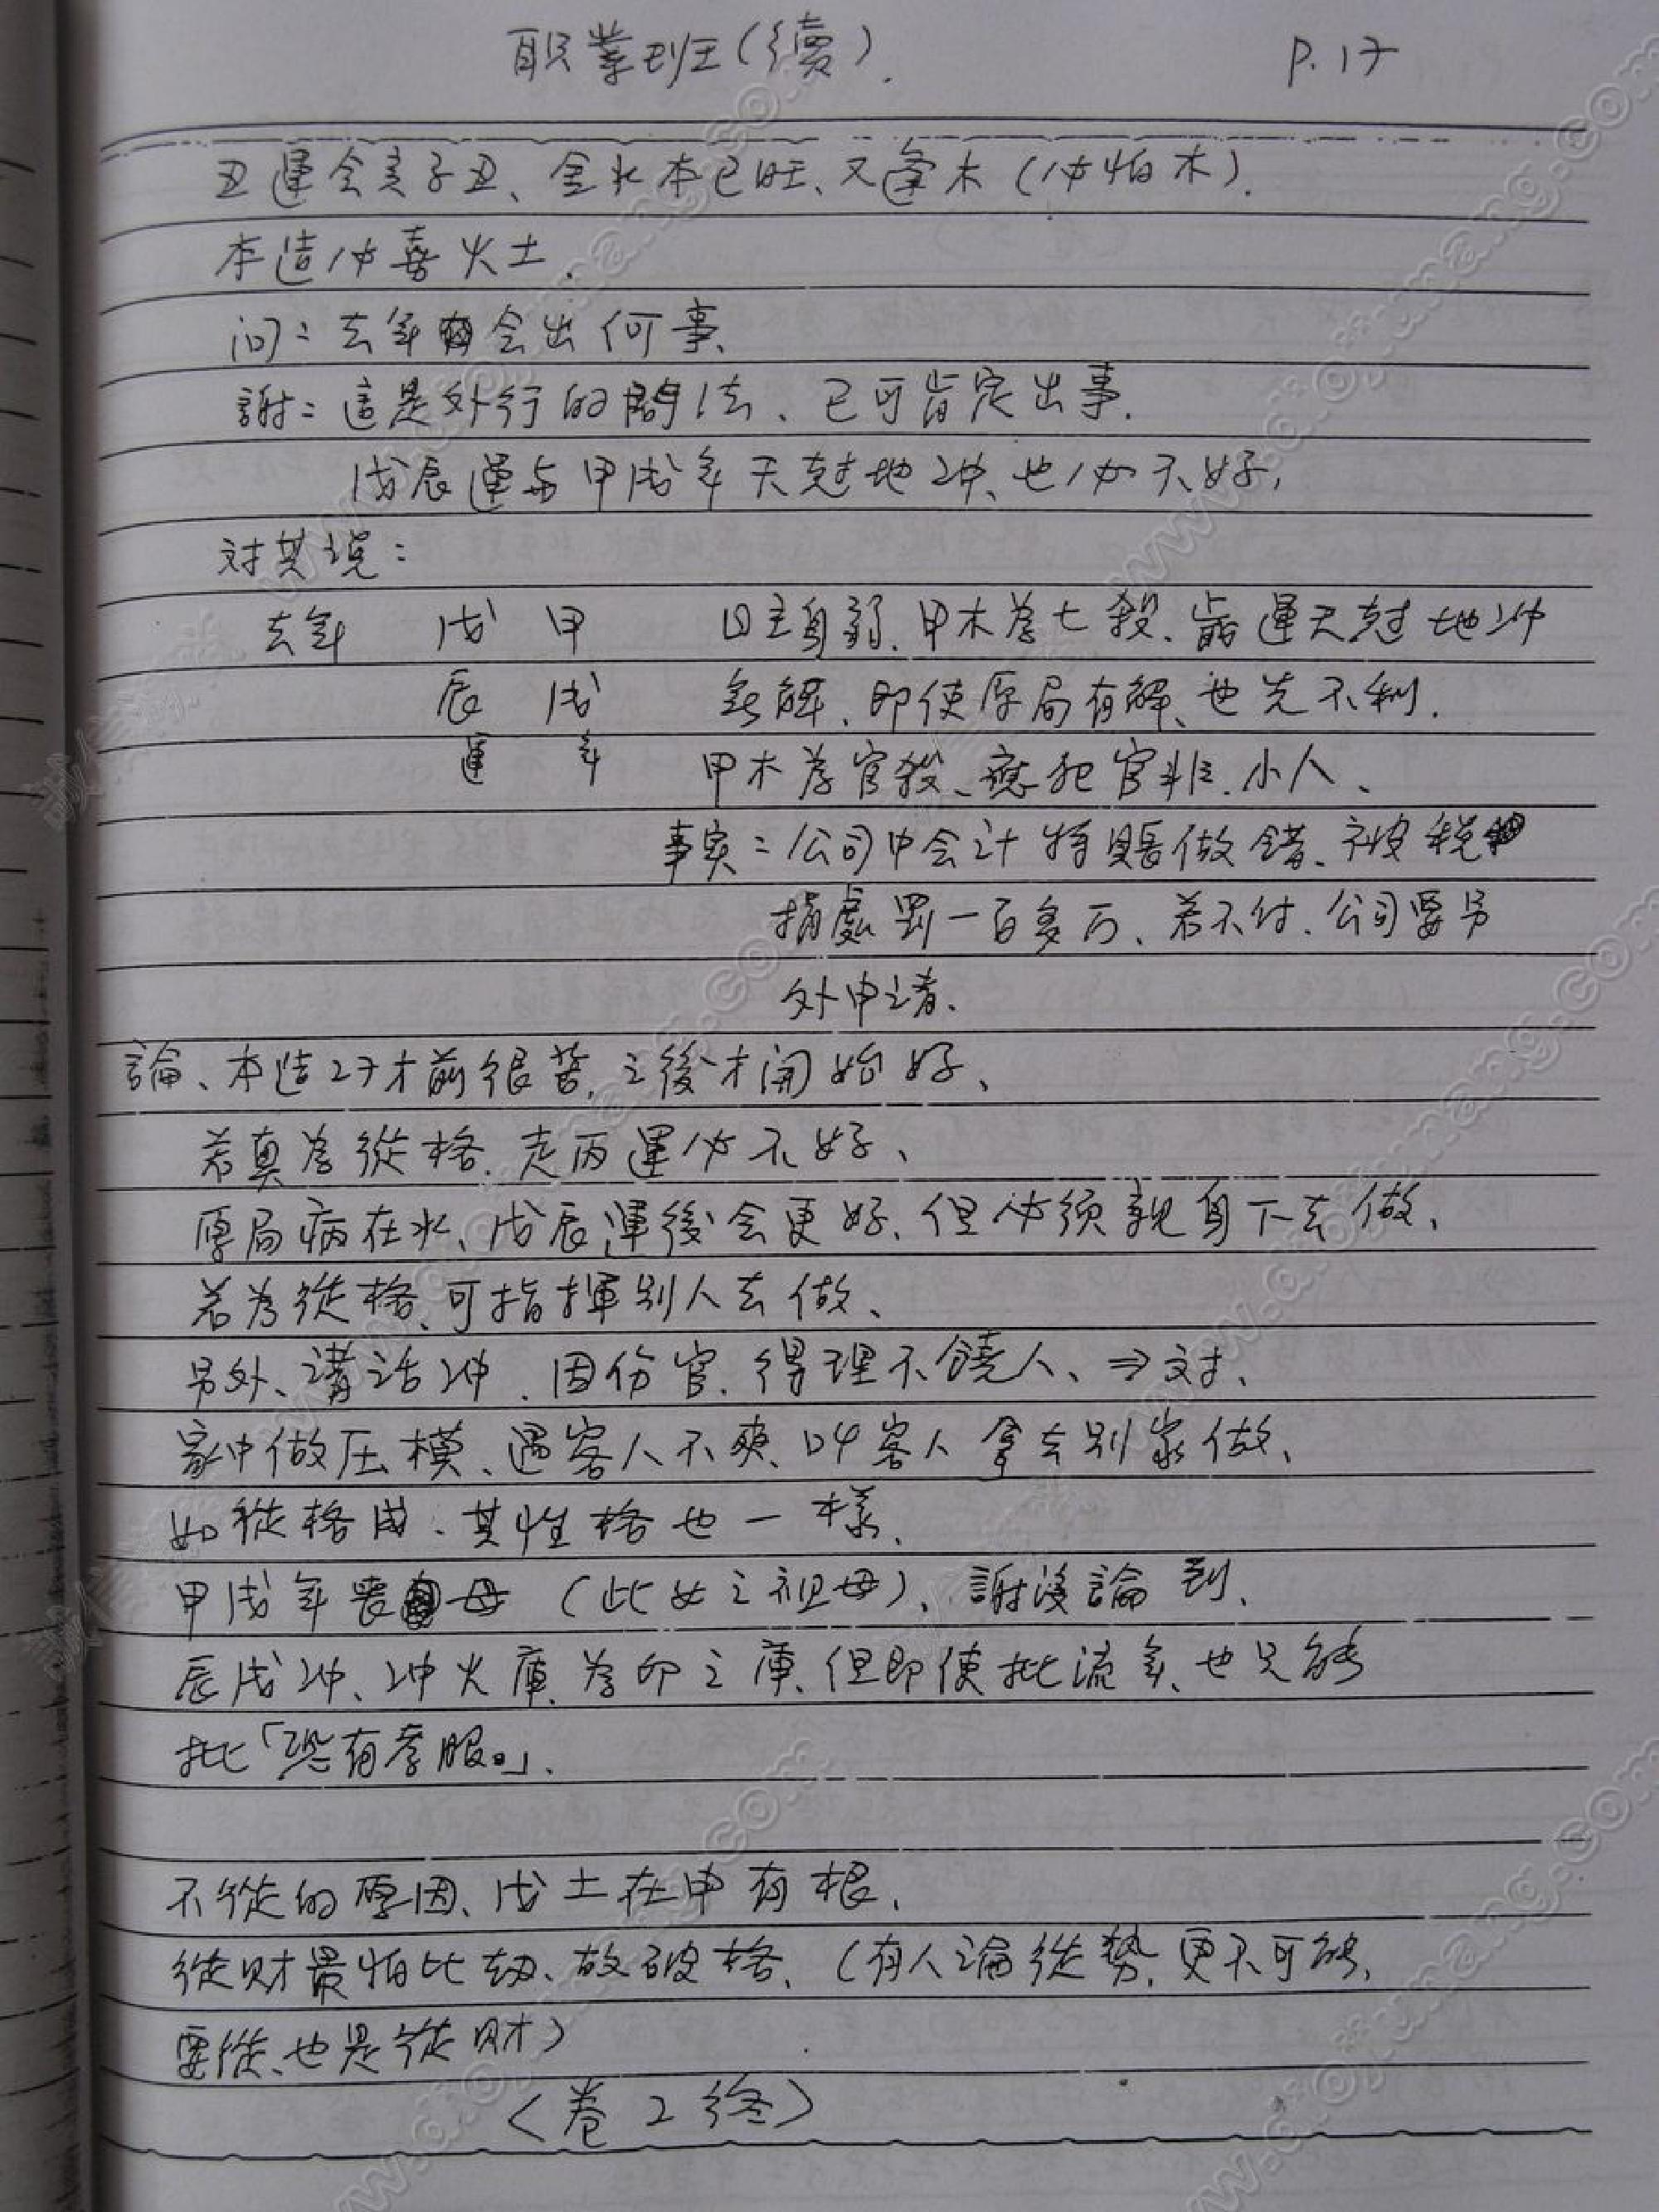 职業班(續). P.17
丑運会亥子丑、金水本已旺、又逢木(必怕木).
本造必喜火土.
问:去年会出何事.
謝:這是外行的問法、已可肯定出事.
戊辰運与甲戌年天尅地沖、也必不好,
对其説:
去年 戊 甲 日主身弱.甲木為七殺、歲運天尅地沖
辰 戌 無解、即使原局有解、也先不利.
運 年 甲木為官殺、應犯官非.小人、
事实:公司中会计將賬做錯、被税
捐處罰一百多万、若不付.公司要另
外申请.
論、本造27才前很苦,之後才開始好、
若真為從格.走丙運必不好、
原局病在水、戊辰運後会更好.但必须親身下去做、
若為從格、可指揮别人去做、
另外、講话沖.因伤官.得理不饒人、⇒对、
家中做压模、遇客人不爽.叫客人拿去别家做、
如從格成、其性格也一樣.
甲戌年喪母(此女之祖母)、謝没論到.
辰戌沖、沖火庫.為印之庫、但即使批流年、也只能
批「恐有孝服。」.
不從的原因、戊土在申有根.
從财最怕比劫、故破格、(有人論從势.更不可能,
要從、也是從财)
〈卷2终〉
www.daojiumang.com